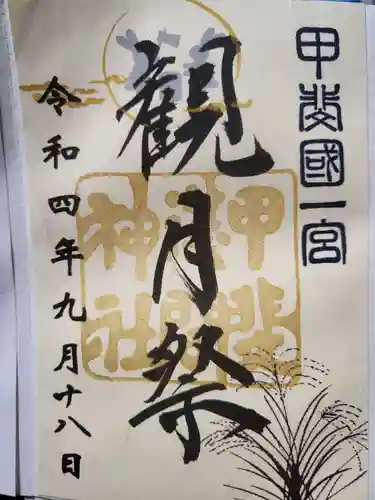 甲斐國一宮
観月祭
甲斐
淺間
神社
令和四年九月廿八日